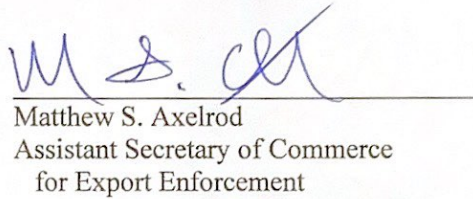 Matthew S. Axelrod
Assistant Secretary of Commerce
for Export Enforcement